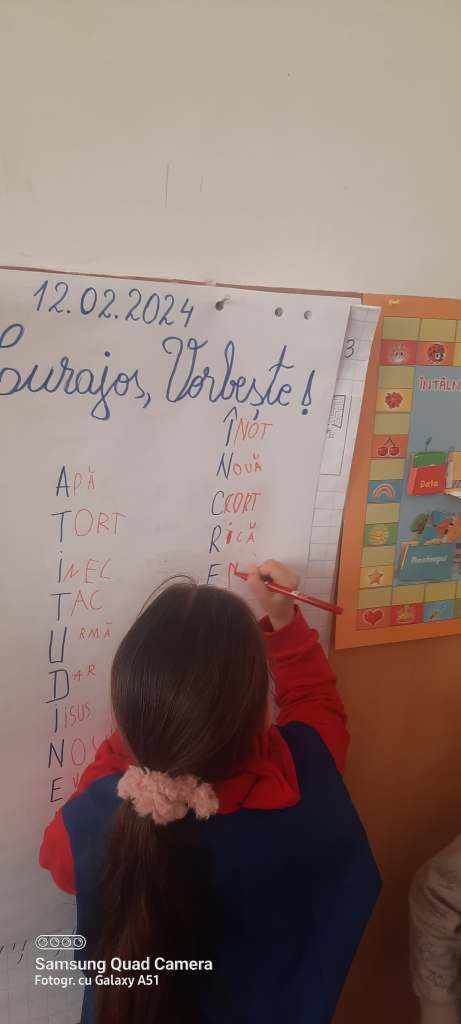 12.02.2024
Curajos, Vorbește!
APĂ
TORT
INEC
TAC
URMĂ
DAR
IISUS
NOS
E
ÎNOT
NOUĂ
CCORT
RICĂ
EN
3
ÎNTÂLN
Data
Samsung Quad Camera
Fotogr. cu Galaxy A51